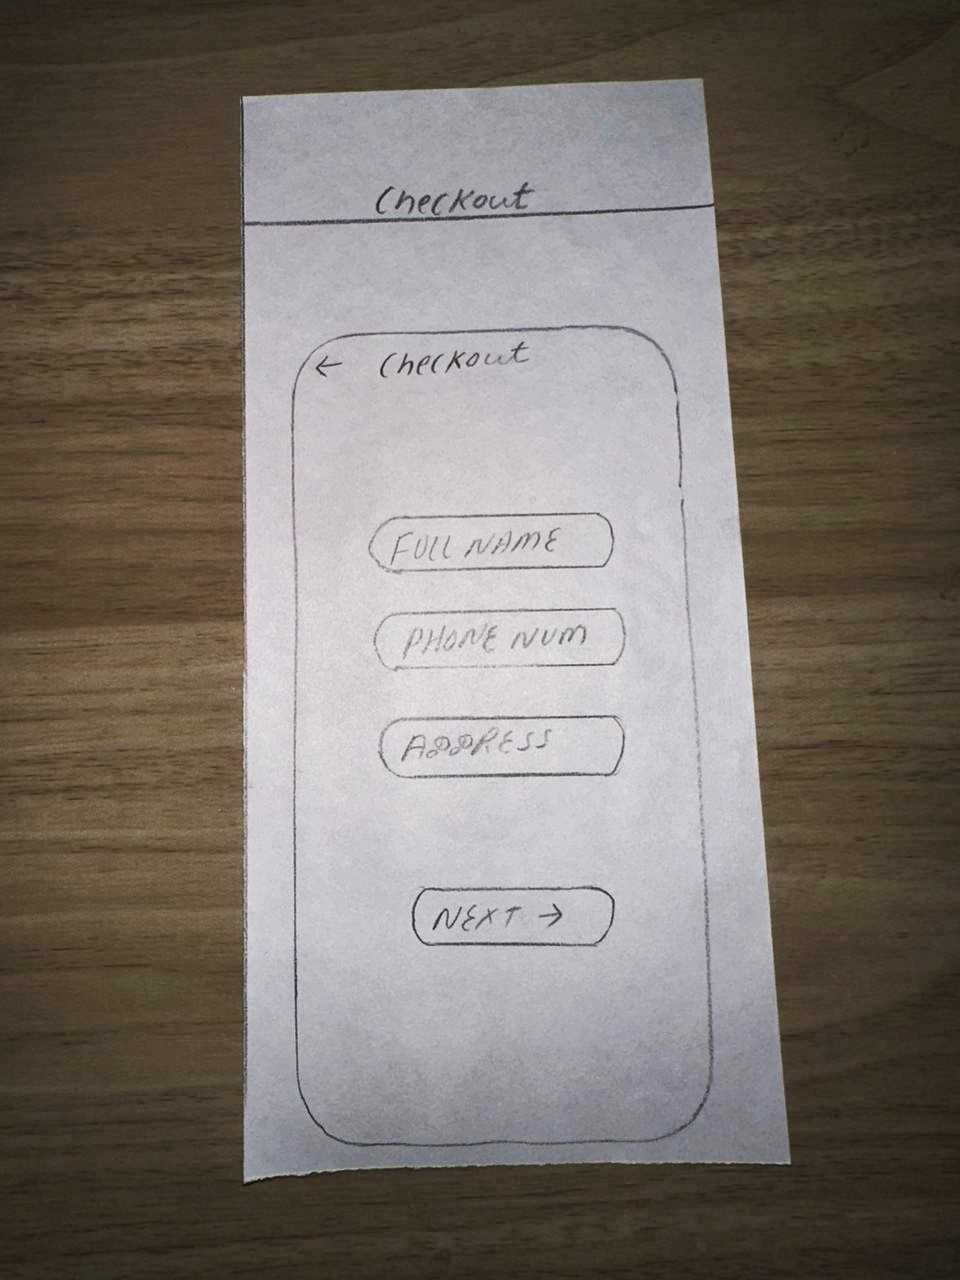 Checkout
← Checkout
FULL NAME
PHONE NUM
ADDRESS
NEXT →